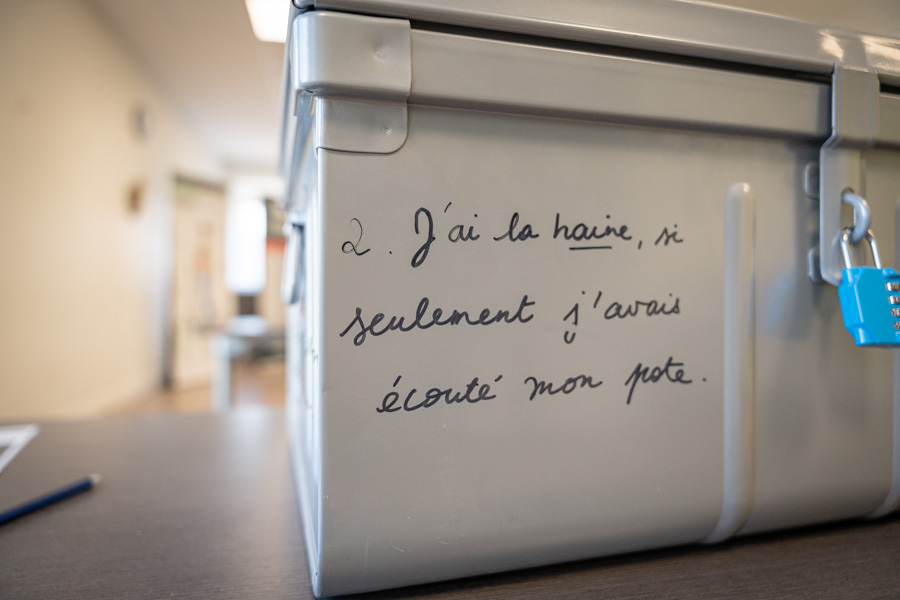 2. J'ai la haine, si
seulement j'avais
écouté mon pote.